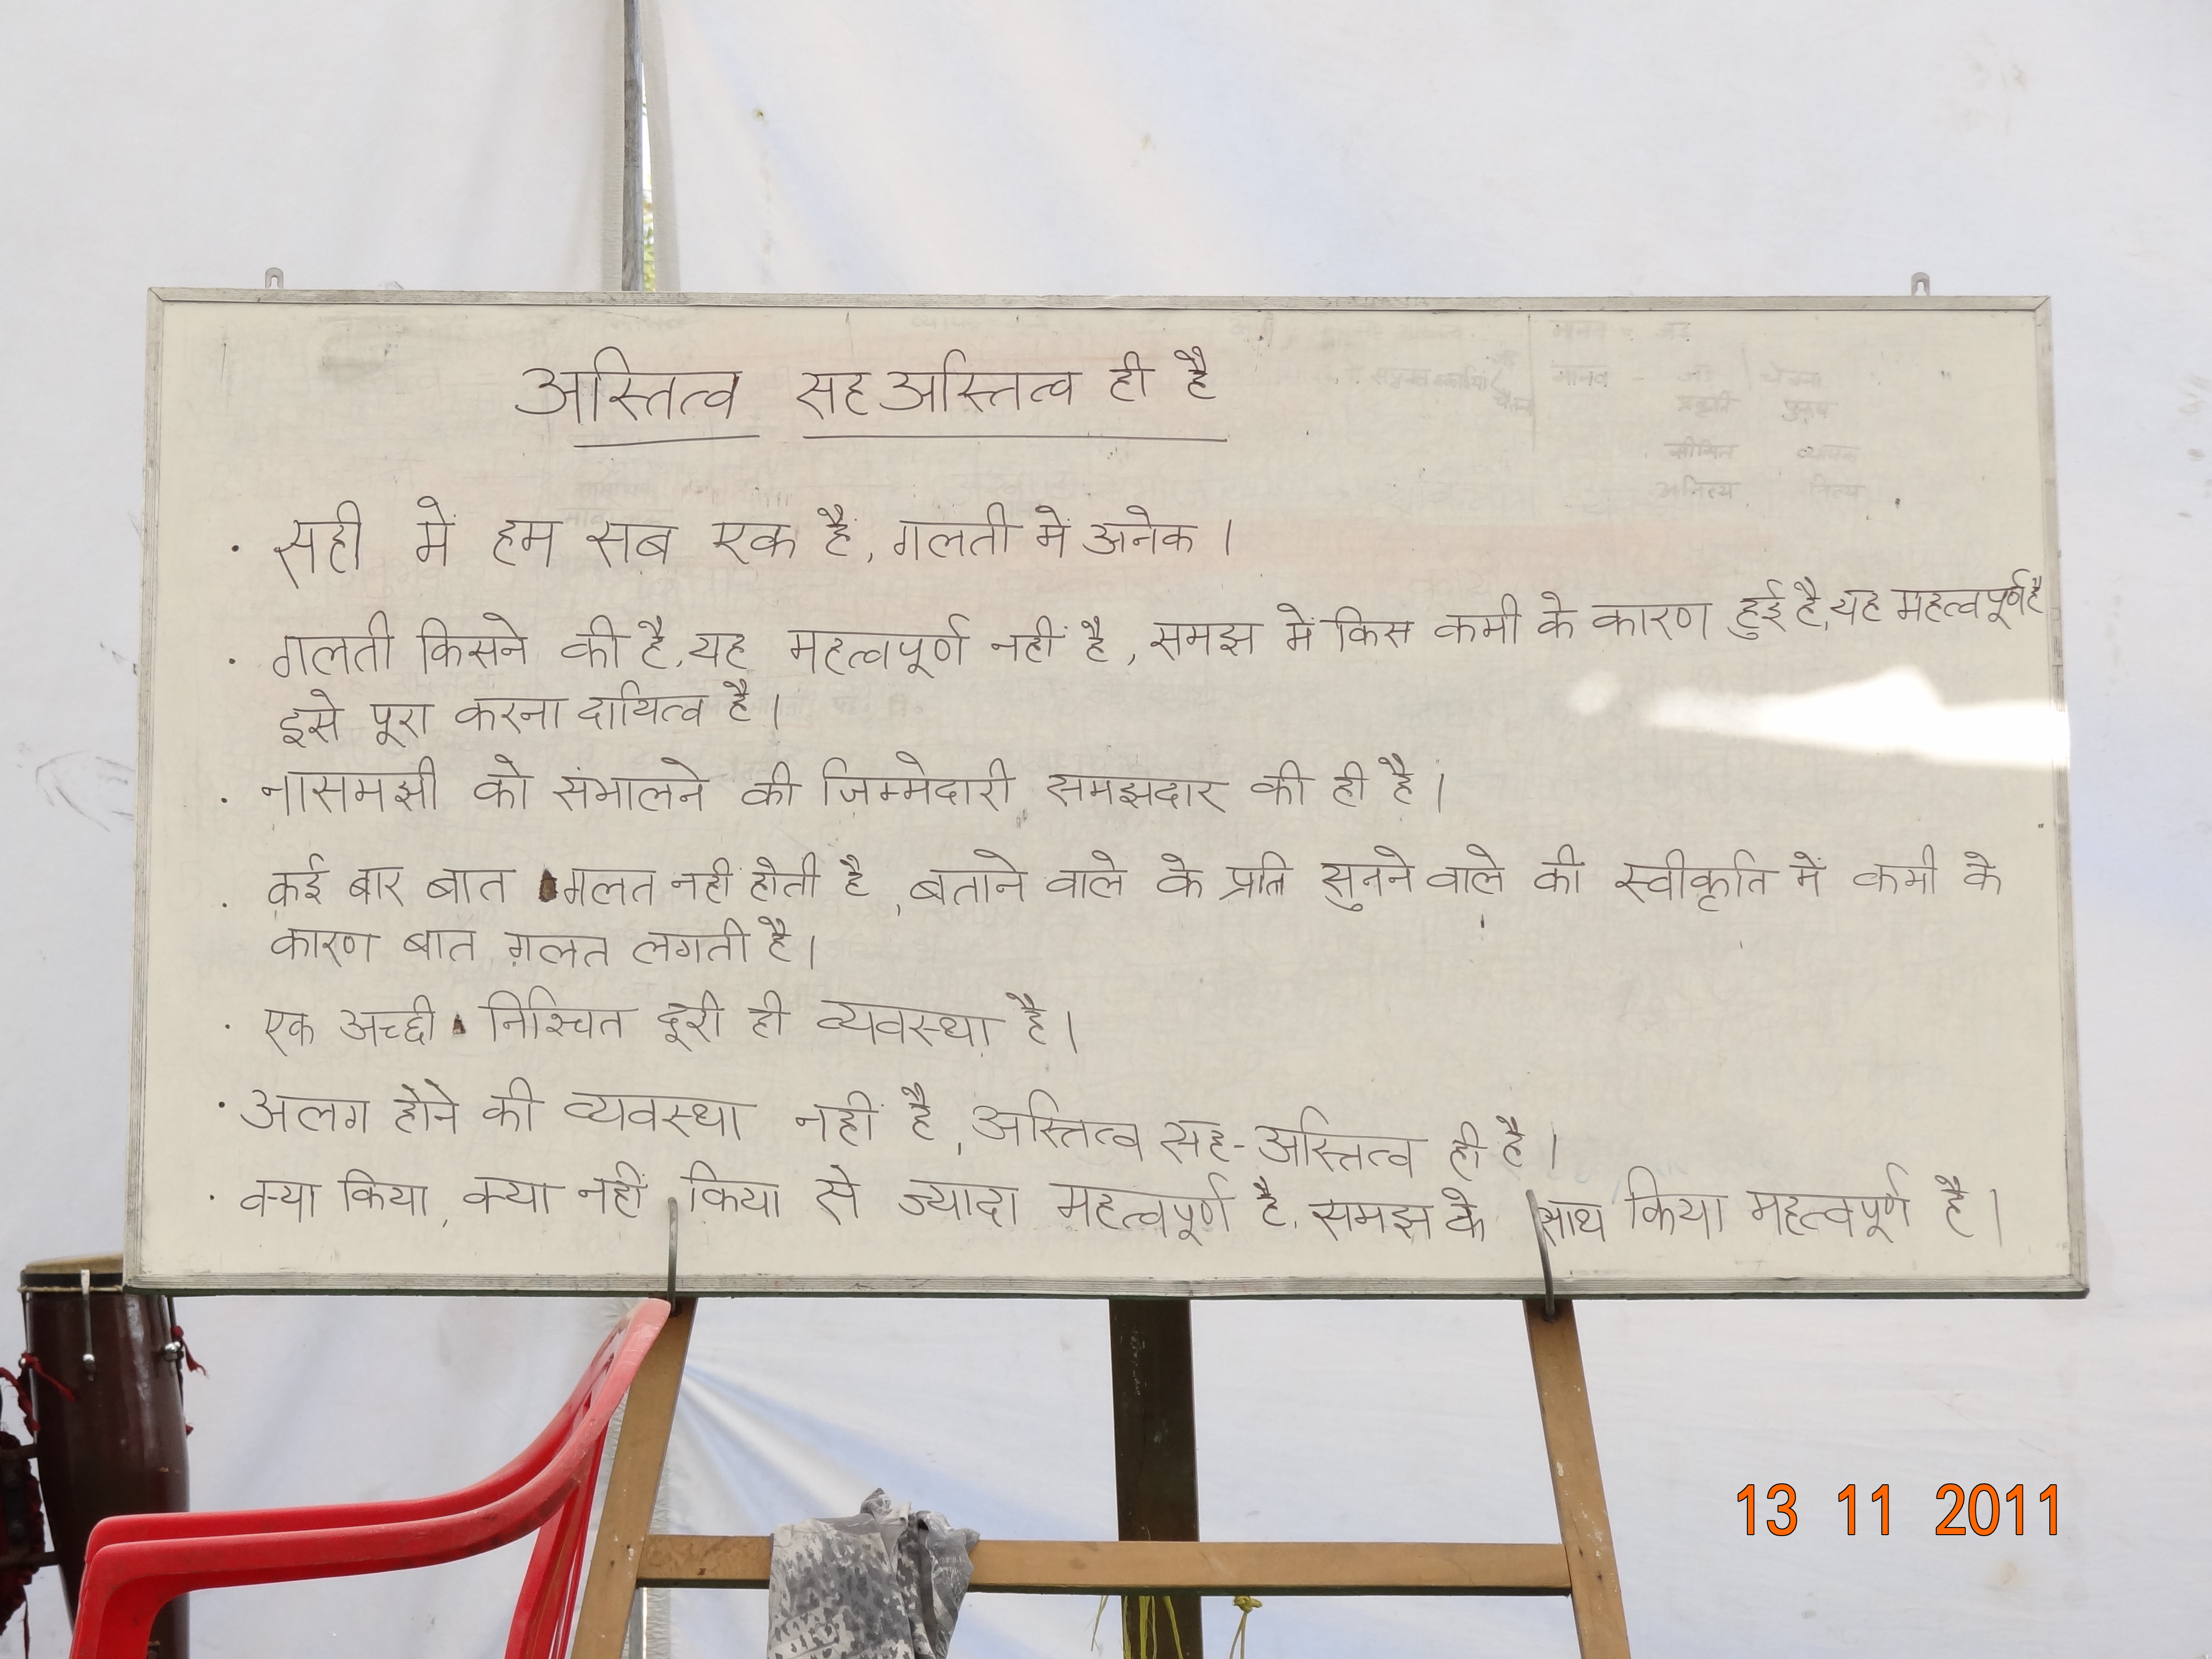 अस्तित्व सहअस्तित्व ही है
· सही में हम सब एक हैं, गलती में अनेक ।
· गलती किसने की है, यह महत्वपूर्ण नहीं है, समझ में किस कमी के कारण हुई है, यह महत्वपूर्ण है
इसे पूरा करना दायित्व है।
· नासमझी को संभालने की जिम्मेदारी समझदार की ही है।
· कई बार बात गलत नहीं होती है, बताने वाले के प्रति सुनने वाले की स्वीकृति में कमी के
कारण बात ग़लत लगती है।
· एक अच्छी निश्चित दूरी ही व्यवस्था है।
· अलग होने की व्यवस्था नहीं है, अस्तित्व सह-अस्तित्व ही है।
· क्या किया, क्या नहीं किया से ज्यादा महत्वपूर्ण है, समझ के साथ किया महत्वपूर्ण है।
13 11 2011